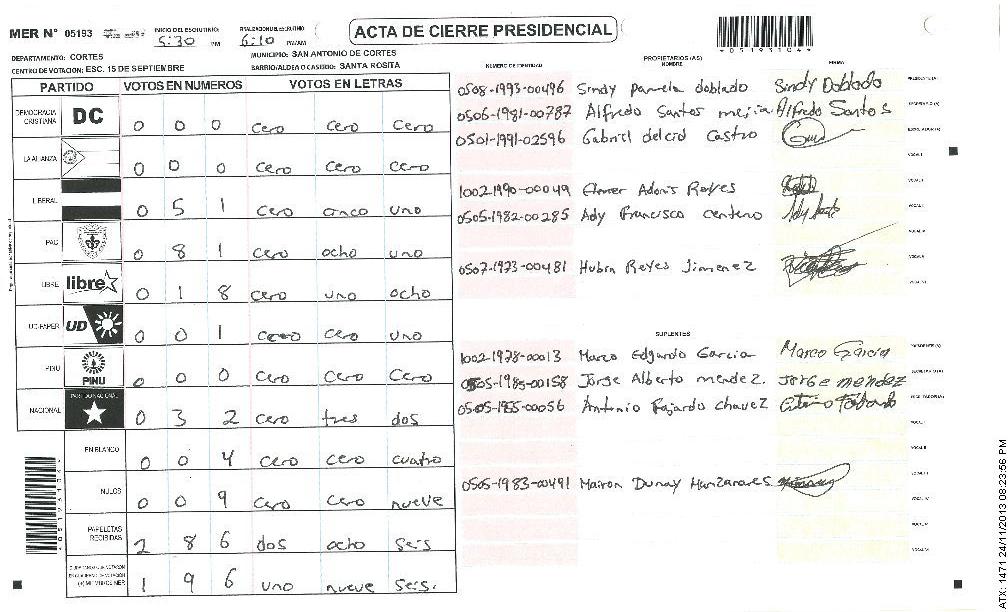 MER N° 05193
INICIO DEL ESCRUTINIO: 5:30 PM
FINALIZACION DEL ESCRUTINIO 6:10 PM/AM
ACTA DE CIERRE PRESIDENCIAL
DEPARTAMENTO: CORTES
MUNICIPIO: SAN ANTONIO DE CORTES
CENTRO DE VOTACION: ESC. 15 DE SEPTIEMBRE
BARRIO/ALDEA O CASERIO: SANTA ROSITA
PARTIDO VOTOS EN NUMEROS VOTOS EN LETRAS
DEMOCRACIA CRISTIANA DC 0 0 0 cero cero cero
LA ALIANZA 0 0 0 cero cero cero
LIBERAL 0 5 1 cero cinco uno
PAC 0 8 1 cero ocho uno
LIBRE libre 0 1 8 cero uno ocho
UD-FAPER UD 0 0 1 cero cero uno
PINU PINU 0 0 0 cero cero cero
NACIONAL PARTIDO NACIONAL 0 3 2 cero tres dos
EN BLANCO 0 0 4 cero cero cuatro
NULOS 0 0 9 cero cero nueve
PAPELETAS RECIBIDAS 2 8 6 dos ocho seis
1 9 6 uno nueve seis.
NUMERO DE IDENTIDAD PROPIETARIOS (AS) NOMBRE FIRMA
0508-1993-00496 Sindy Pamela doblado Sindy Doblado PRESIDENTE (A)
0506-1981-00787 Alfredo Santos mejia Alfredo Santos SECRETARIO (A)
0501-1991-02596 Gabriel delcid Castro ESCRUTADOR (A)
VOCAL I
1002-1990-00049 Elmer Adonis Reyes
0505-1982-00285 Ady Francisco centeno
0507-1973-00481 Hubin Reyes Jimenez
SUPLENTES
1002-1978-00013 Marco Edgardo Garcia Marco Garcia PRESIDENTE (A)
0505-1985-00158 Jorge Alberto mendez. Jorge mendez SECRETARIO (A)
0505-1955-00056 Antonio Fajardo chavez ESCRUTADOR (A)
0505-1983-00491 Mairon Dunay Manzanares
ATX: 1471 24/11/2013 08:23:56 PM